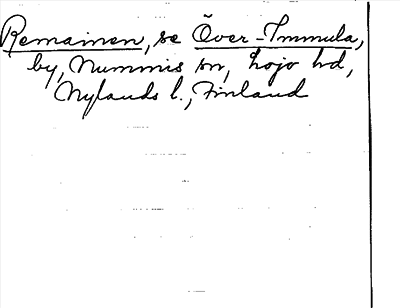 Remainen, se Över-Immula,
by, Nummis sn, Lojo hd,
Nylands l., Finland